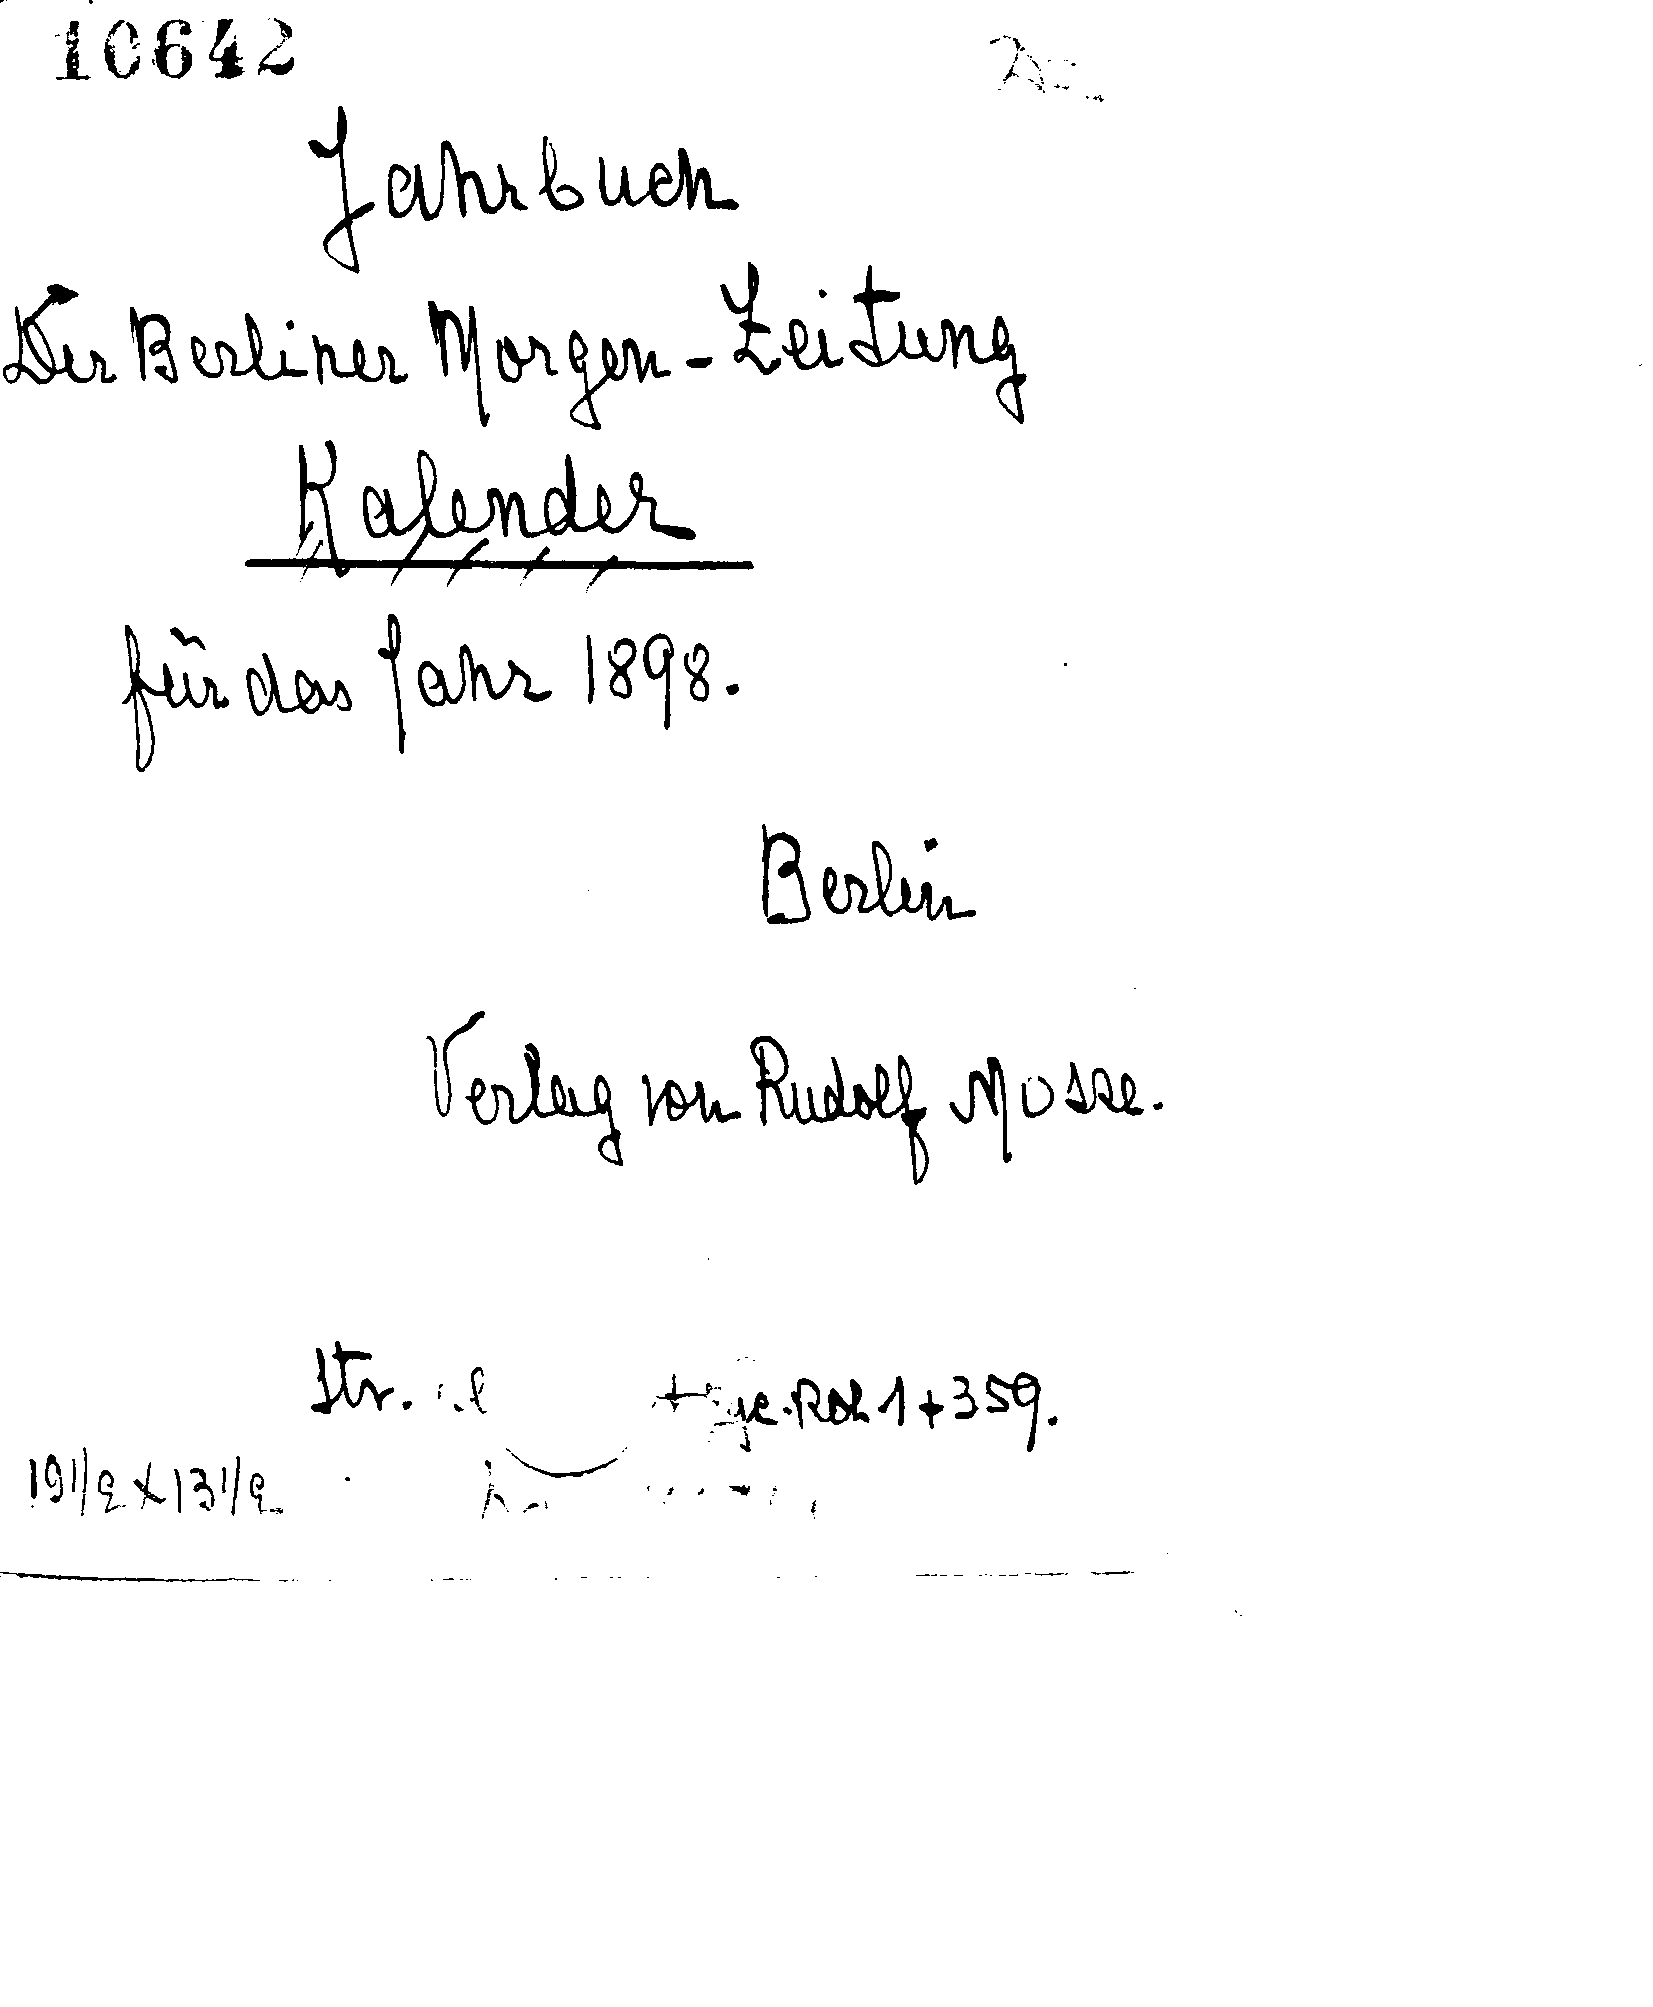 10642
Jahrbuch
Der Berliner Morgen-Zeitung
Kalender
für das Jahr 1898.
Berlin
Verlag von Rudolf Mosse.
Str. 1+359.
19 1/2 x 13 1/2